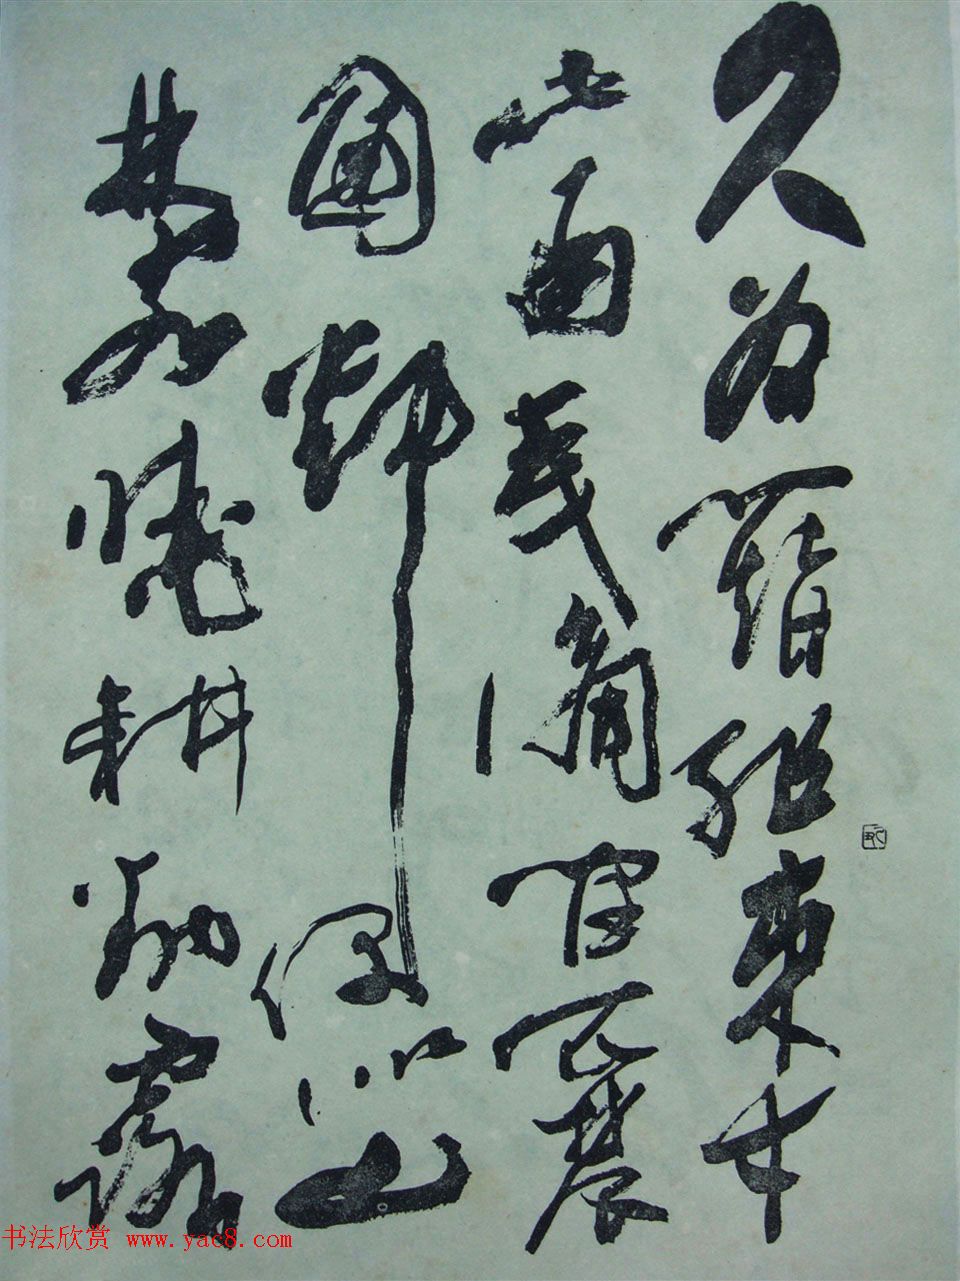 久為簪組束幸
此南夷謫閒依農
圃鄰偶似山
林客曉耕翻露
书法欣赏 www.yac8.com